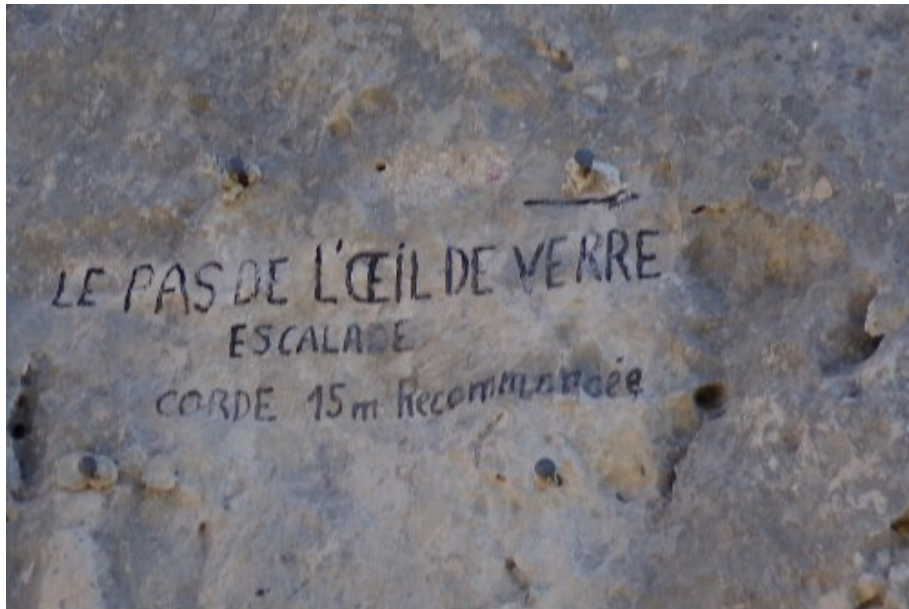 LE PAS DE L'ŒIL DE VERRE
ESCALADE
CORDE 15m Recommandée